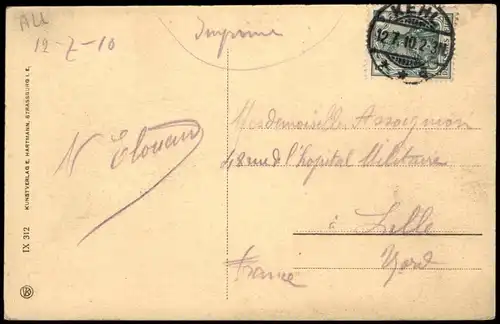 ALL
12-7-10
Imprimé
KEHL
12.7.10.2-3N
Mesdemoiselles Assoignion
48 rue de l'hopital Militaire
à Lille
Nord
France
KUNSTVERLAG E. HARTMANN, STRASSBURG I. E.
IX 312